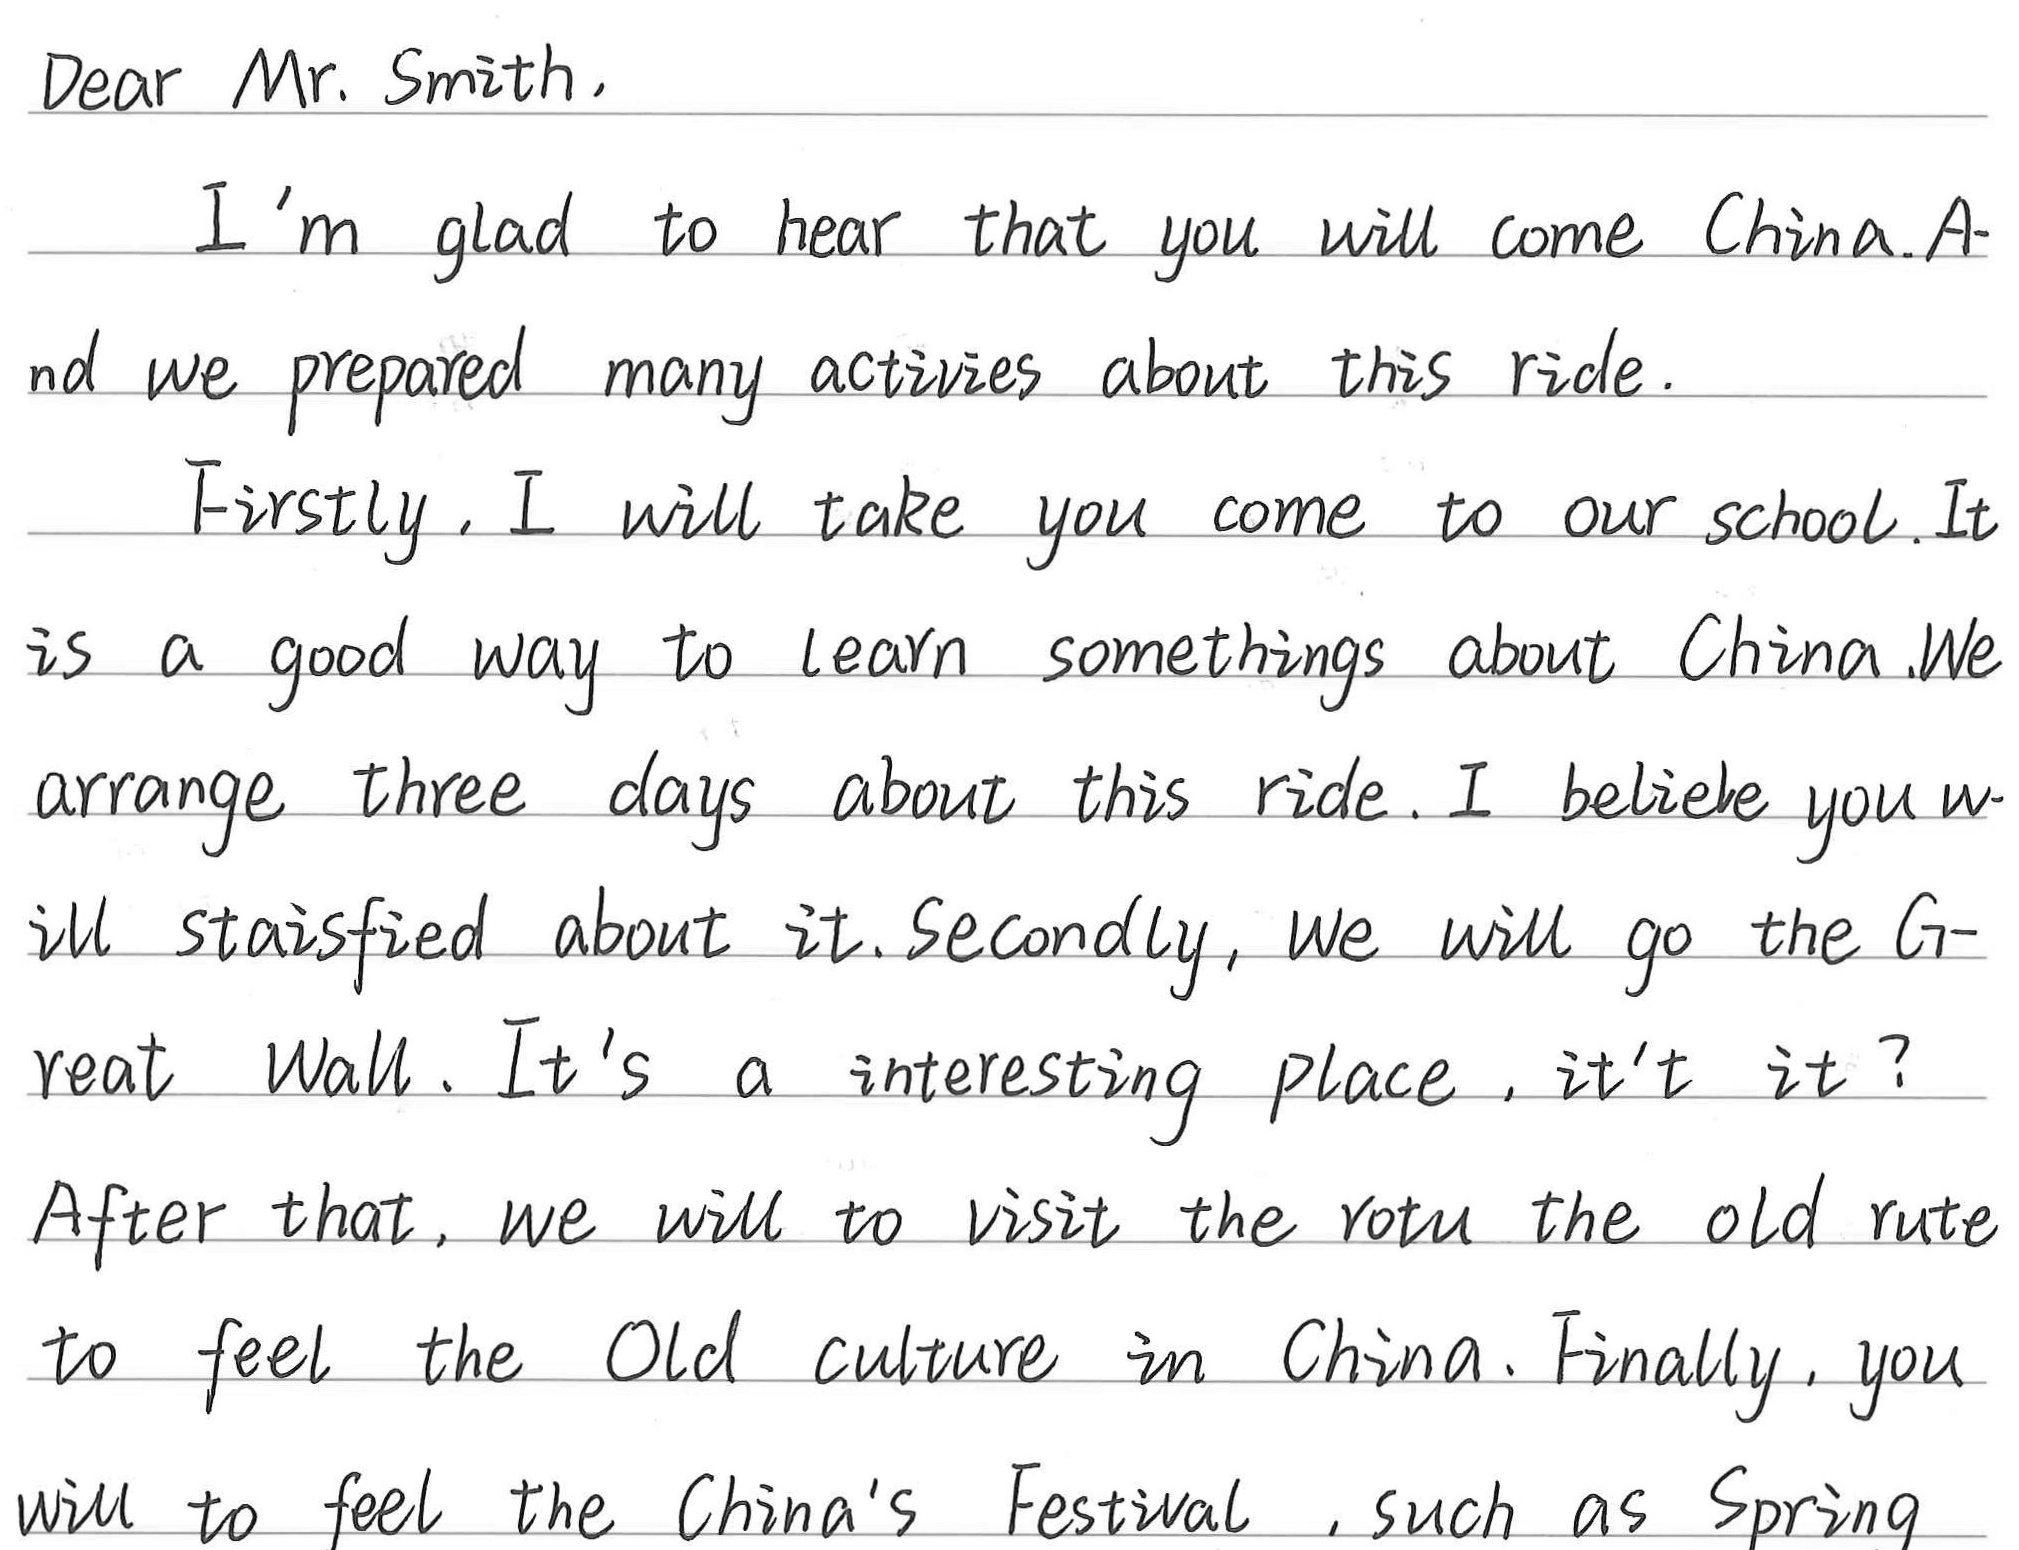 Dear Mr. Smith,
I'm glad to hear that you will come China. A-
nd we prepared many activies about this ride.
Firstly, I will take you come to our school. It
is a good way to learn somethings about China. We
arrange three days about this ride. I believe you w-
ill staisfied about it. Secondly, we will go the G-
reat Wall. It's a interesting place, it't it?
After that, we will to visit the rotu the old rute
to feel the Old culture in China. Finally, you
will to feel the China's Festival, such as Spring